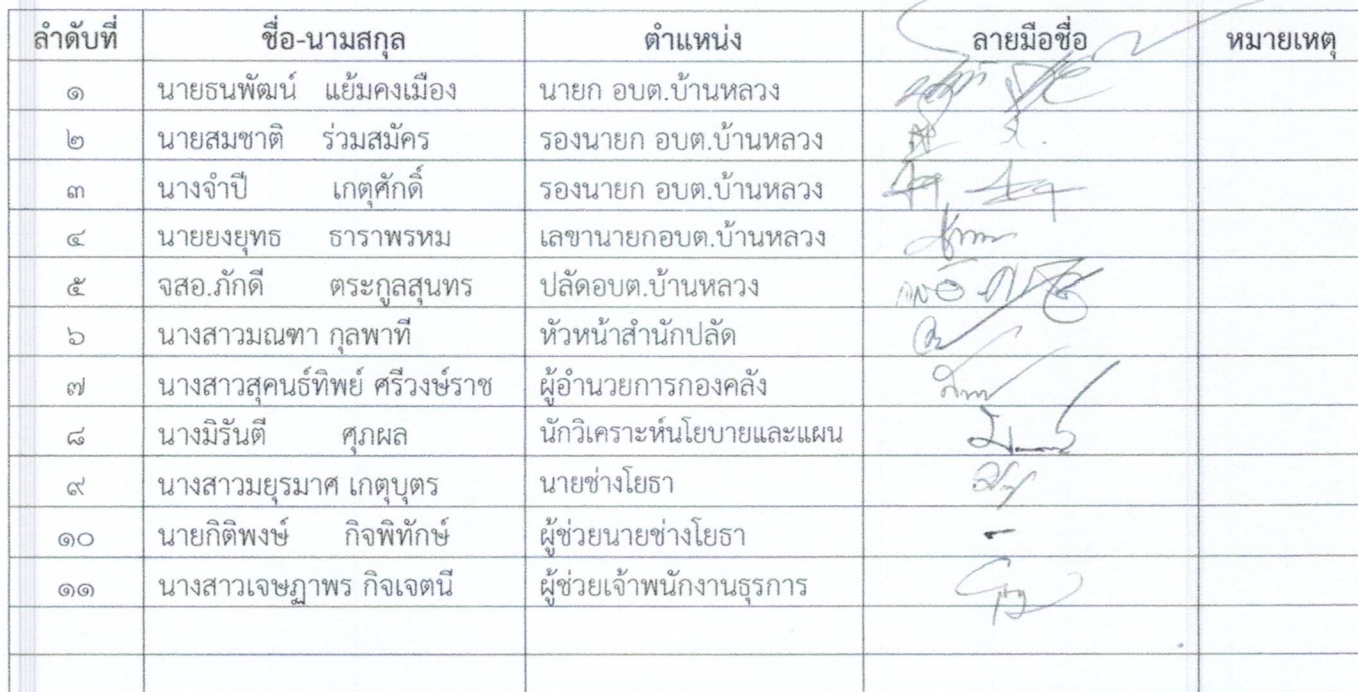 ลำดับที่ ชื่อ-นามสกุล ตำแหน่ง ลายมือชื่อ หมายเหตุ
๑ นายธนพัฒน์ แย้มคงเมือง นายก อบต.บ้านหลวง
๒ นายสมชาติ ร่วมสมัคร รองนายก อบต.บ้านหลวง
๓ นางจำปี เกตุศักดิ์ รองนายก อบต.บ้านหลวง
๔ นายยงยุทธ ธาราพรหม เลขานายกอบต.บ้านหลวง
๕ จสอ.ภักดี ตระกูลสุนทร ปลัดอบต.บ้านหลวง
๖ นางสาวมณฑา กุลพาที หัวหน้าสำนักปลัด
๗ นางสาวสุคนธ์ทิพย์ ศรีวงษ์ราช ผู้อำนวยการกองคลัง
๘ นางมิรันตี ศุภผล นักวิเคราะห์นโยบายและแผน
๙ นางสาวมยุรมาศ เกตุบุตร นายช่างโยธา
๑๐ นายกิติพงษ์ กิจพิทักษ์ ผู้ช่วยนายช่างโยธา -
๑๑ นางสาวเจษฎาพร กิจเจตนี ผู้ช่วยเจ้าพนักงานธุรการ